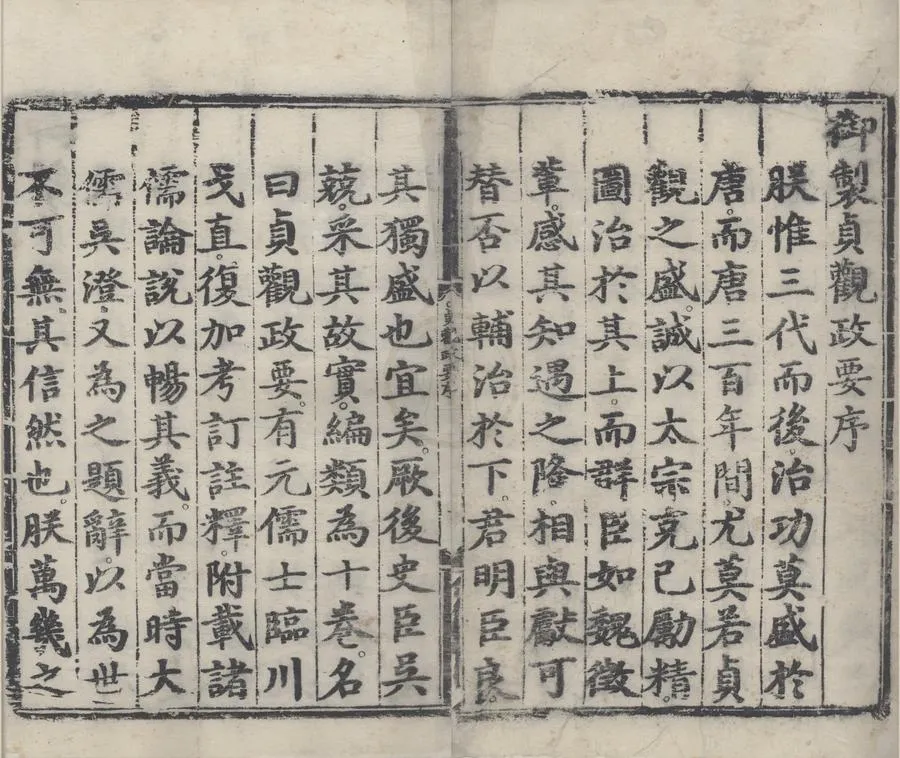 御製貞觀政要序
朕惟三代而後。治功莫盛於
唐。而唐三百年間。尤莫若貞
觀之盛。誠以太宗克己勵精。
圖治於其上。而群臣如魏徵
輩。感其知遇之隆。相與獻可
替否以輔治於下。君明臣良。
其獨盛也宜矣。厥後史臣吳
兢。采其故實。編類為十卷。名
曰貞觀政要。有元儒士臨川
戈直。復加考訂註釋。附載諸
儒論說以暢其義。而當時大
儒吳澄。又為之題辭。以為世
不可無。其信然也。朕萬幾之
貞觀政要序